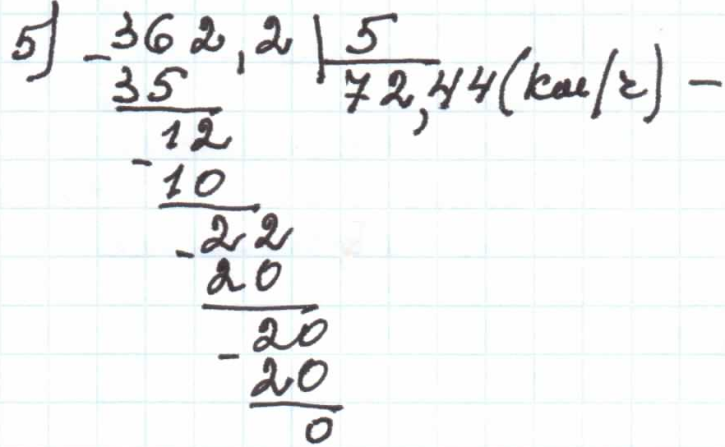 5) - 362,2 | 5
35 72,44 (км/ч) -
- 12
10
- 22
20
- 20
20
0